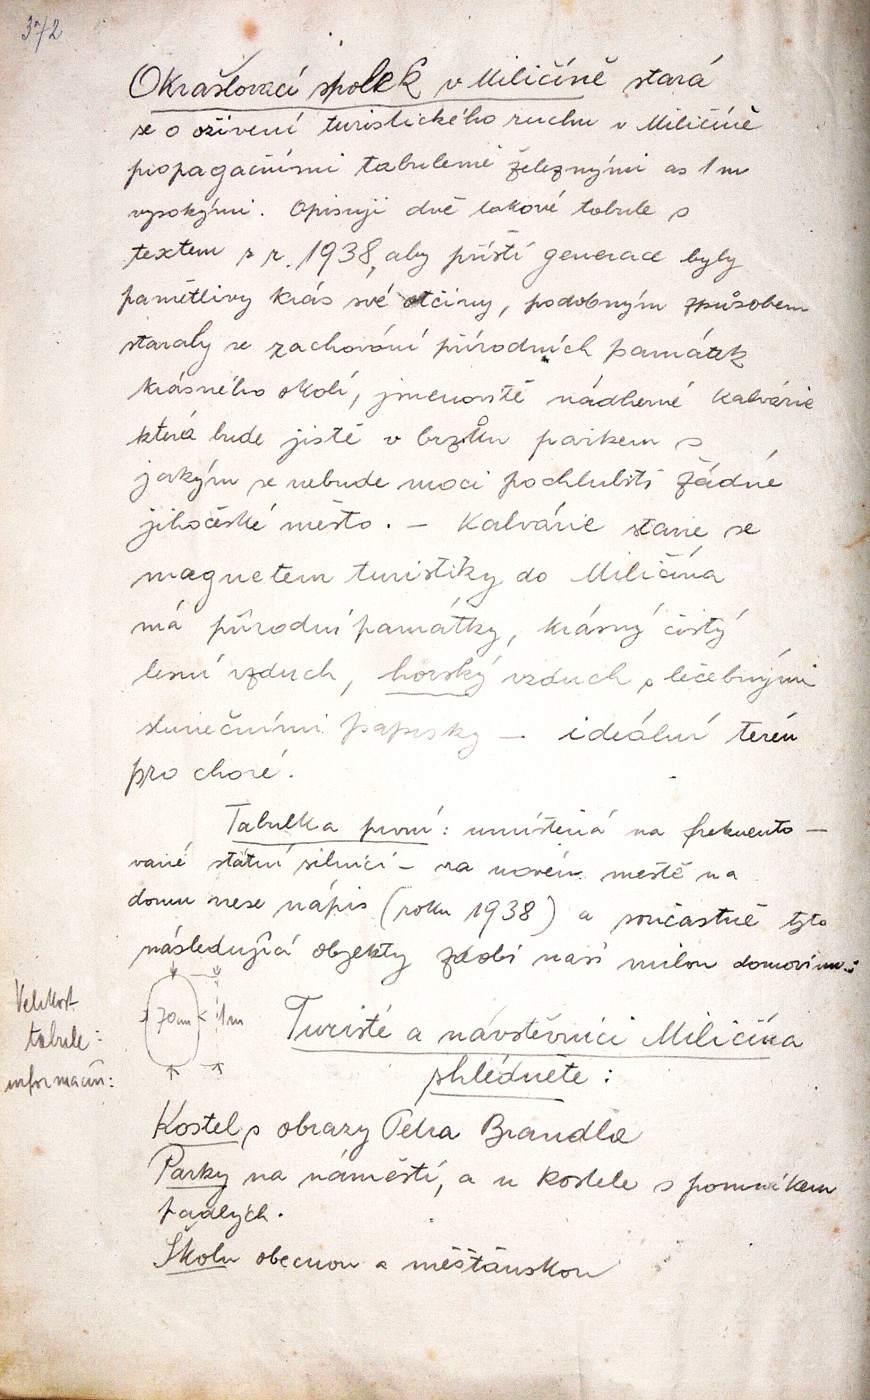 372
Okrašlovací spolek v Miličíně stará
se o oživení turistického ruchu v Miličíně
propagačními tabulemi železnými as 1 m
vysokými. Opisuji dvě takové tabule s
textem z r. 1938, aby příští generace byly
pamětlivy krás své otčiny, podobným způsobem
staraly se zachování přírodních památek
krásného okolí, jmenovitě nádherné Kalvárie
která bude jistě v brzku parkem s
jakým se nebude moci pochlubiti žádné
jihočeské město. — Kalvárie stane se
magnetem turistiky do Miličína
má přírodní památky, krásný čistý
lesní vzduch, horský vzduch s léčebnými
slunečními paprsky — ideální terén
pro choré.
Tabulka první: umístěná na frekvento—
vané státní silnici — na novém městě na
domu nese nápis (roku 1938) a současně tyto
následující objekty zdobí naši milou domovinu.:
Velikost
tabule:
informační:
70 cm 1 m
Turisté a návštěvníci Miličína
shlédněte:
Kostel s obrazy Petra Brandla
Parky na náměstí, a u kostela s pomníkem
padlých.
Školu obecnou a měšťanskou